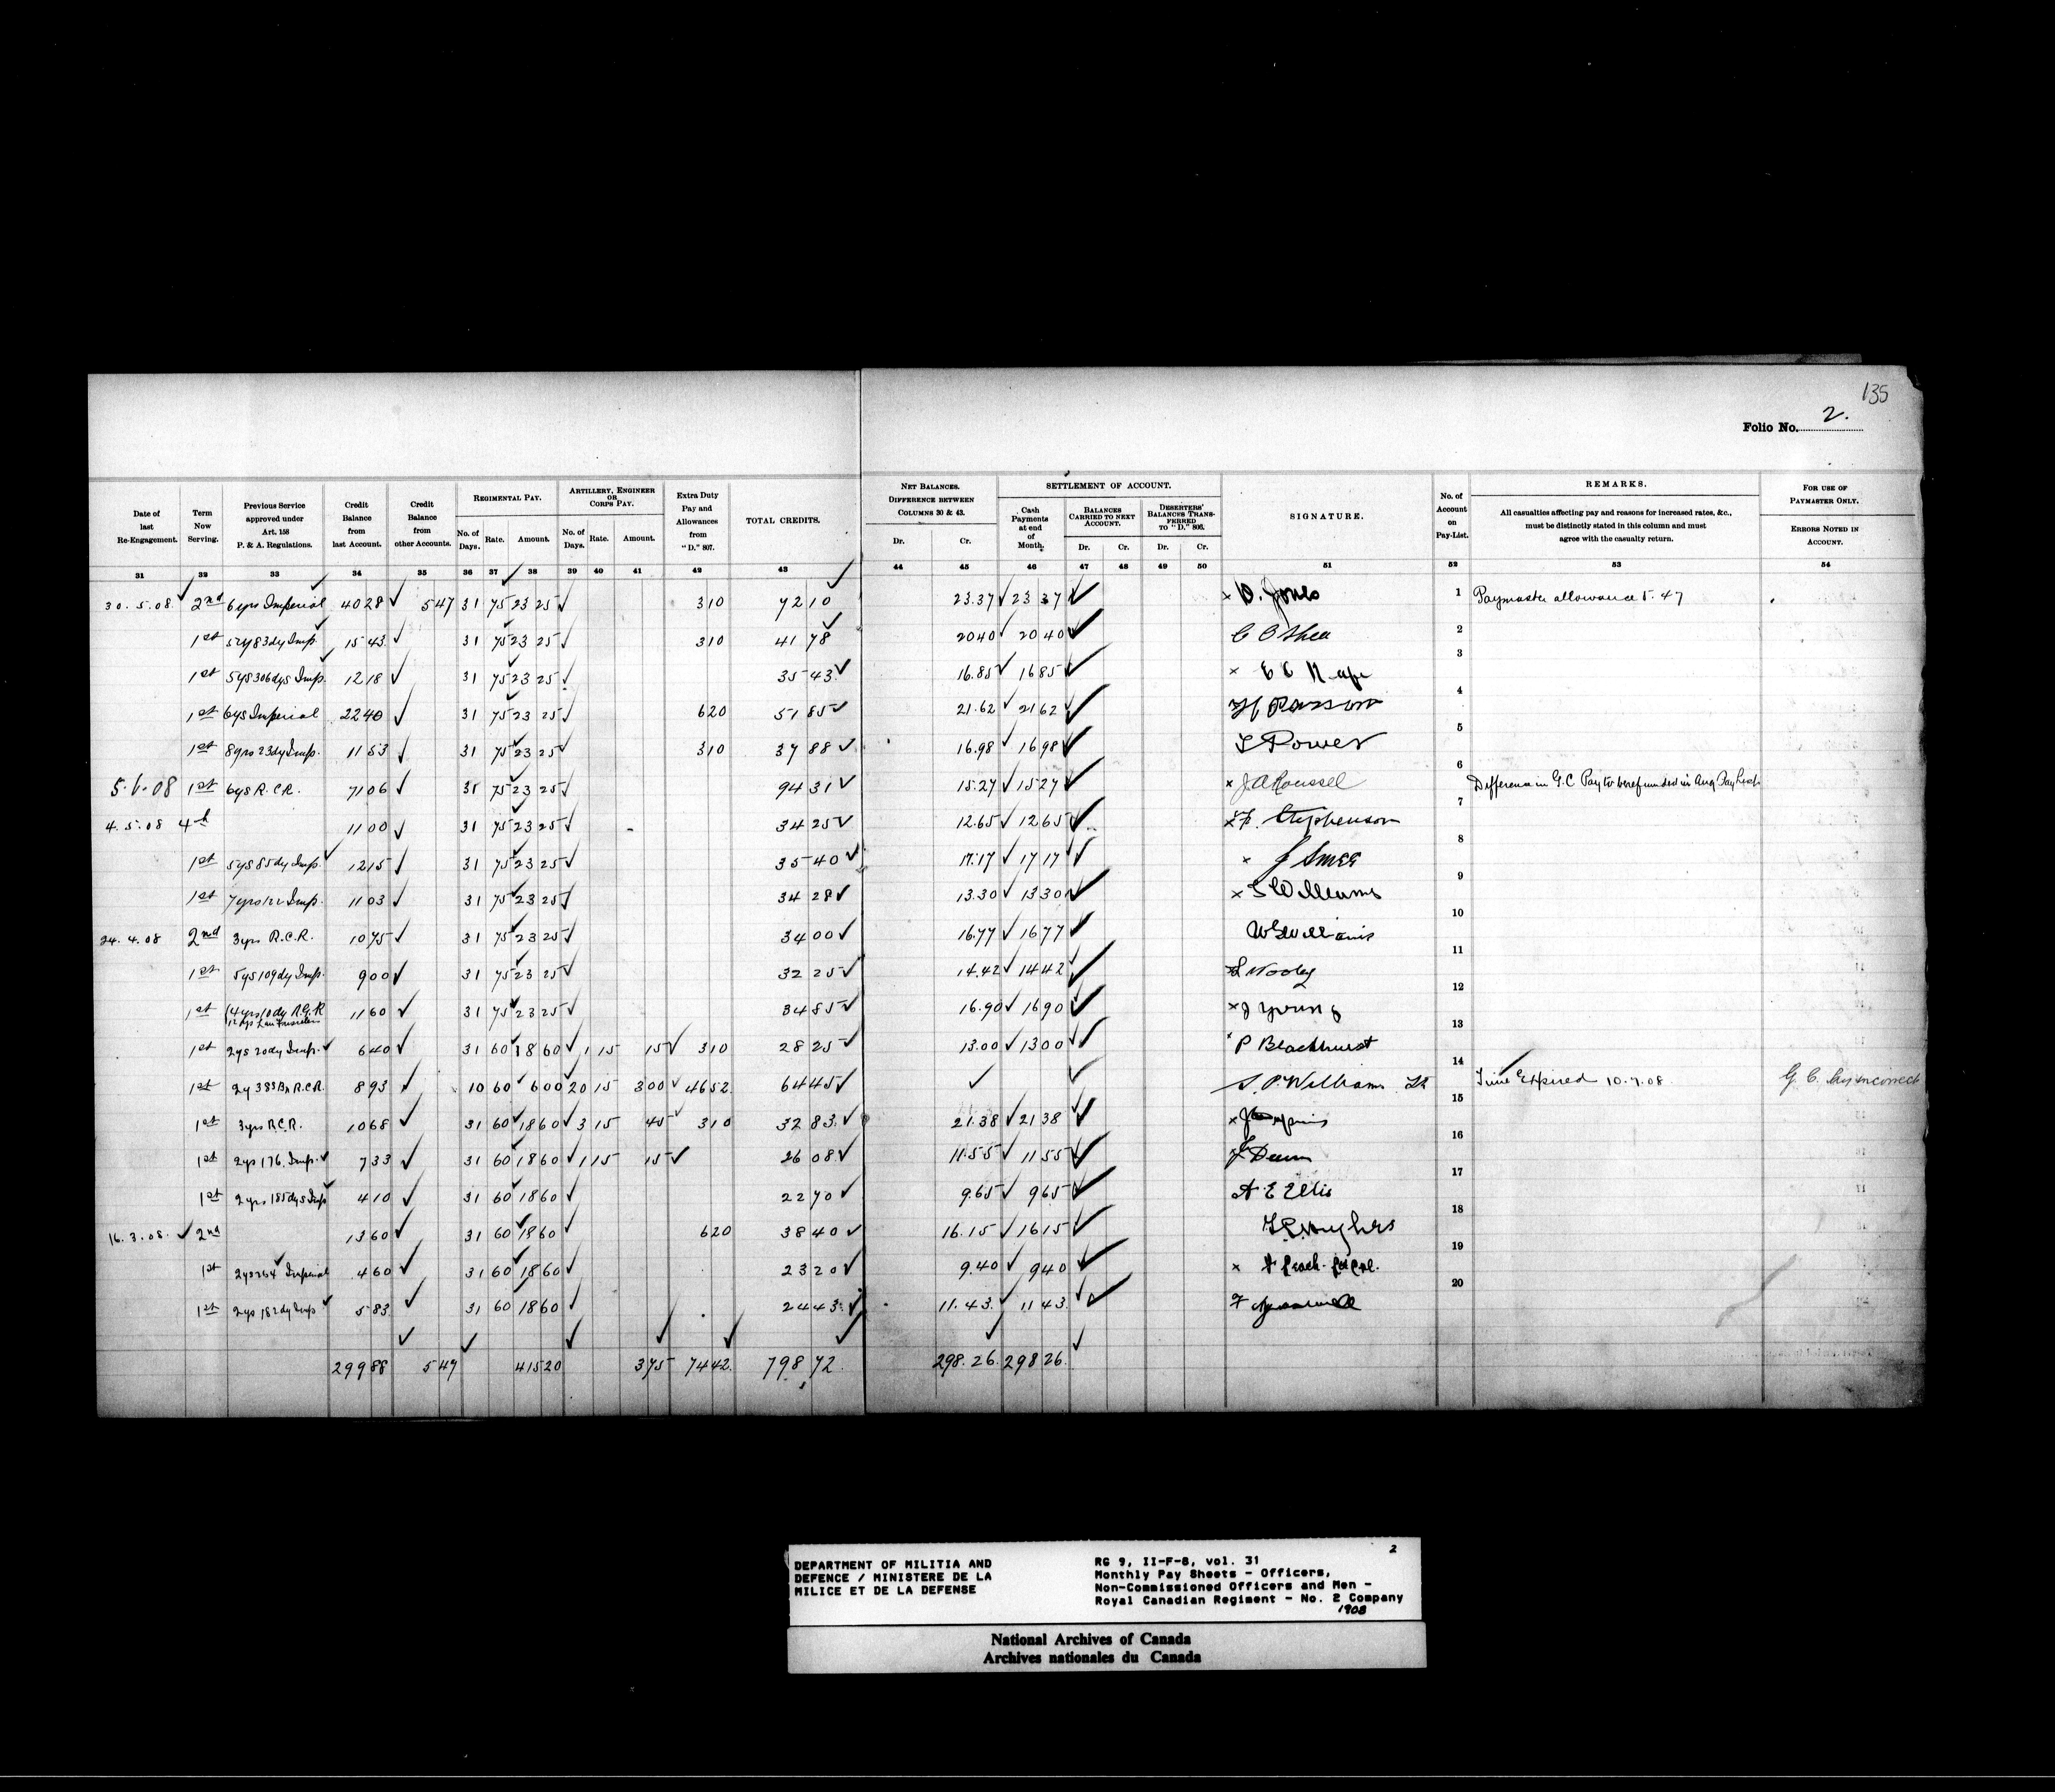 135
Folio No. 2.
Date of last Re-Engagement. Term Now Serving. Previous Service approved under Art. 158 P. & A. Regulations. Credit Balance from last Account. Credit Balance from other Accounts. REGIMENTAL PAY. No. of Days. Rate. Amount. ARTILLERY, ENGINEER OR CORPS PAY. No. of Days. Rate. Amount. Extra Duty Pay and Allowances from "D." 807. TOTAL CREDITS. NET BALANCES. DIFFERENCE BETWEEN COLUMNS 30 & 43. Dr. Cr. SETTLEMENT OF ACCOUNT. Cash Payments at end of Month. BALANCES CARRIED TO NEXT ACCOUNT. Dr. Cr. DESERTERS' BALANCES TRANSFERRED TO "D." 806. Dr. Cr. SIGNATURE. No. of Account on Pay-List. REMARKS. All casualties affecting pay and reasons for increased rates, &c., must be distinctly stated in this column and must agree with the casualty return. FOR USE OF PAYMASTER ONLY. ERRORS NOTED IN ACCOUNT.
31 32 33 34 35 36 37 38 39 40 41 42 43 44 45 46 47 48 49 50 51 52 53 54
30.5.08 2nd 6yrs Imperial 40 28 5 47 31 75 23 25 3 10 72 10 23.37 23 37 D. Jones 1 Paymaster allowance 5.47
1st 83dy Imp. 15 43 31 75 23 25 3 10 41 78 20 40 20 40 C O'Shea 2
1st 5ys 306dys Imp. 12 18 31 75 23 25 35 43 16.85 16 85 3
1st 6ys Imperial 22 40 31 75 23 25 6 20 51 85 21.62 21 62 H Parson 4
1st 8yrs 23dy Imp. 11 53 31 75 23 25 3 10 37 88 16.98 16 98 Power 5
08 1st 6ys R.C.R. 71 06 31 75 23 25 94 31 15.27 15 27 J A Roussel 6 Difference in G.C Pay to be refunded in Aug Pay List
4.5.08 4th 11 00 31 75 23 25 34 25 12.65 12 65 Stephenson 7
1st 5ys 85dy Imp. 12 15 31 75 23 25 35 40 17.17 17 17 J Smee 8
1st 7yrs Imp. 11 03 31 75 23 25 34 28 13.30 13 30 Williams 9
24.4.08 2nd 3yrs R.C.R. 10 75 31 75 23 25 34 00 16.77 16 77 Williams 10
1st 5ys 109dy Imp. 9 00 31 75 23 25 32 25 14.42 14 42 11
1st 4yrs 10dy 11 60 31 75 23 25 34 85 16.90 16 90 J Young 12
1st 2ys 20dy Imp. 6 40 31 60 18 60 1 15 15 3 10 28 25 13.00 13 00 P Blackhurst 13
1st 2y R.C.R. 8 93 10 60 6 00 20 15 3 00 46 52 64 45 S. P. Williams 14 Time Expired 10.7.08 G. C. Pay incorrect
1st 3yrs R.C.R. 10 68 31 60 18 60 3 15 45 3 10 32 83 21.38 21 38 15
1st 2ys 176 Imp. 7 33 31 60 18 60 1 15 15 26 08 11.55 11 55 16
1st 2yrs 185dys Imp 4 10 31 60 18 60 22 70 9.65 9 65 A E Ellis 17
16.3.08 2nd 13 60 31 60 18 60 6 20 38 40 16.15 16 15 Hughes 18
1st 2ys 264 Imperial 4 60 31 60 18 60 23 20 9.40 9 40 19
1st 2ys 182dy Imp 5 83 31 60 18 60 24 43 11.43 11 43 20
299 88 5 47 415 20 3 75 74 42 798 72 298.26 298 26
DEPARTMENT OF MILITIA AND
DEFENCE / MINISTERE DE LA
MILICE ET DE LA DEFENSE
2
RG 9, II-F-8, vol. 31
Monthly Pay Sheets - Officers,
Non-Commissioned Officers and Men -
Royal Canadian Regiment - No. 2 Company
1908
National Archives of Canada
Archives nationales du Canada